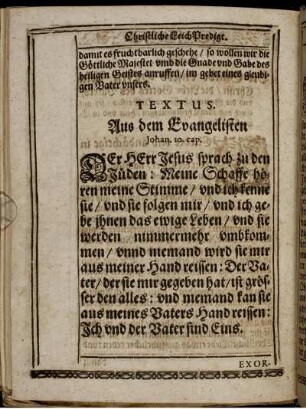 Christliche LeichPredigt.
damit es fruchtbarlich geschehe / so wollen wir die
Göttliche Majestet vmb die Gnade vnd Gabe des
heiligen Geistes anruffen / im gebet eines gleubi-
gen Vater vnsers.
TEXTUS.
Aus dem Evangelisten
Johan. 10. cap.
DEr HErr Jesus sprach zu den
Jüden: Meine Schaffe hö-
ren meine Stimme / vnd ich kenne
sie / vnd sie folgen mir / vnd ich ge-
be jhnen das ewige Leben / vnd sie
werden nimmermehr vmbkom-
men / vnnd niemand wird sie mir
aus meiner Hand reissen: Der Va-
ter / der sie mir gegeben hat / ist grös-
ser den alles: vnd niemand kan sie
aus meines Vaters Hand reissen:
Jch vnd der Vater sind Eins.
EXOR-